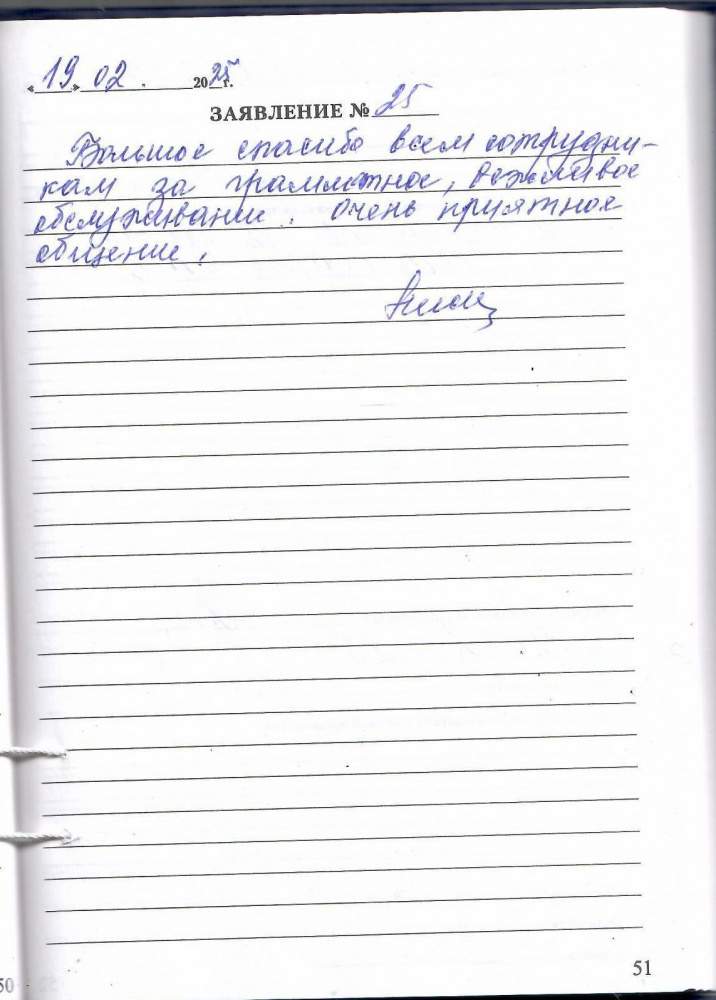 «19» 02. 2025 г.
ЗАЯВЛЕНИЕ № 25
Большое спасибо всем сотрудни-
кам за грамотное, вежливое
обслуживание. Очень приятное
общение.
51
50